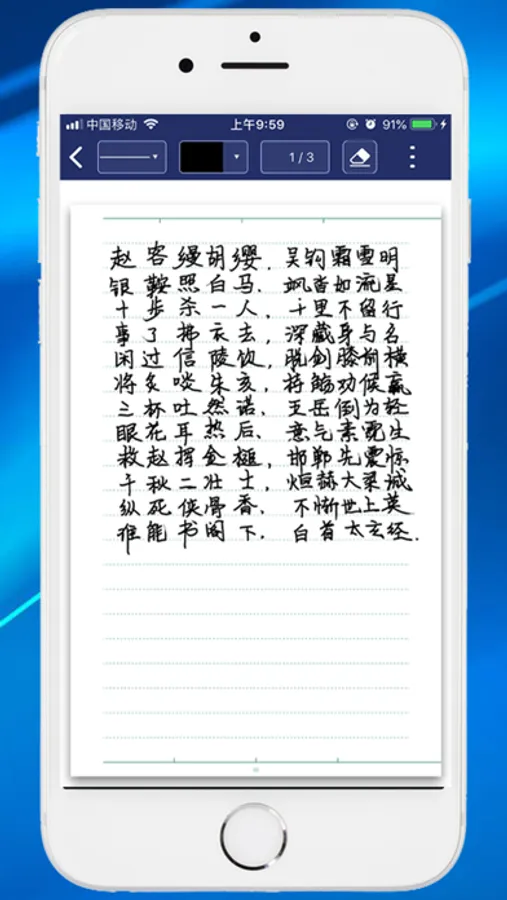 中国移动 上午9:59 91%
1 / 3
赵客缦胡缨，吴钩霜雪明
银鞍照白马，飒沓如流星
十步杀一人，千里不留行
事了拂衣去，深藏身与名
闲过信陵饮，脱剑膝前横
将炙啖朱亥，持觞劝侯嬴
三杯吐然诺，五岳倒为轻
眼花耳热后，意气素霓生
救赵挥金槌，邯郸先震惊
千秋二壮士，烜赫大梁城
纵死侠骨香，不惭世上英
谁能书阁下，白首太玄经.